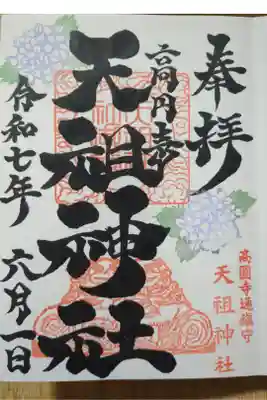 奉拝
高円寺
天祖神社
令和七年
六月一日
高圓寺
天祖神社